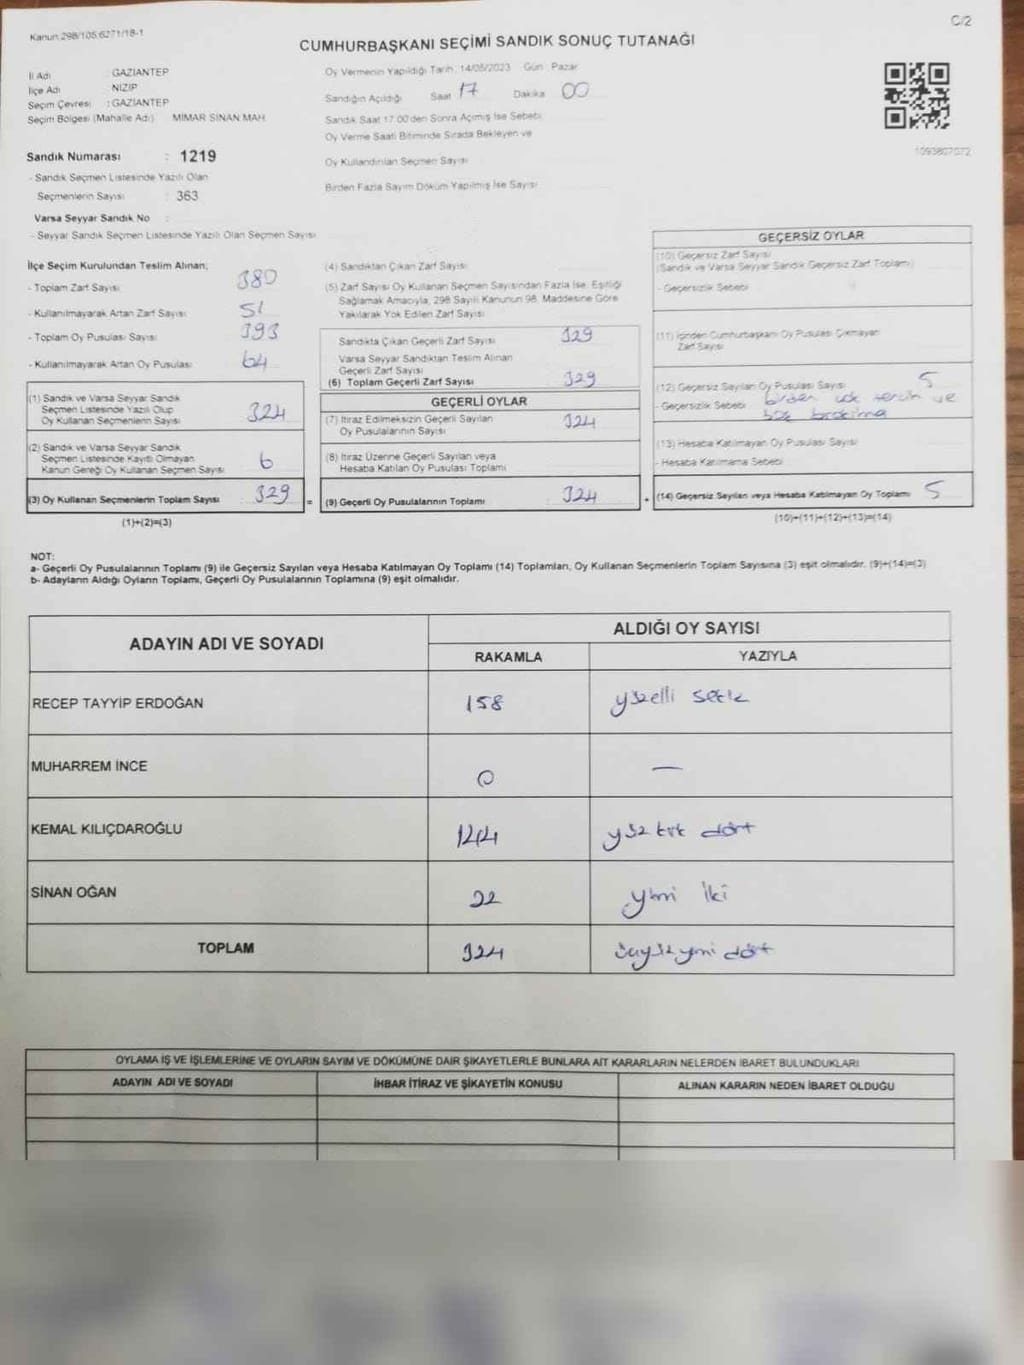 Kanun:298/105;6271/18-1
C/2
CUMHURBAŞKANI SEÇİMİ SANDIK SONUÇ TUTANAĞI
İl Adı : GAZİANTEP
İlçe Adı NİZİP
Seçim Çevresi : GAZİANTEP
Seçim Bölgesi (Mahalle Adı) MİMAR SİNAN MAH.
Oy Vermenin Yapıldığı Tarih: 14/05/2023 Gün: Pazar
Sandığın Açıldığı Saat 17 Dakika 00
Sandık Saat 17:00'den Sonra Açımış İse Sebebi
Oy Verme Saati Bitiminde Sırada Bekleyen ve
Oy Kullandırılan Seçmen Sayısı
Birden Fazla Sayım Döküm Yapılmış İse Sayısı
1093807072
Sandık Numarası : 1219
- Sandık Seçmen Listesinde Yazılı Olan
Seçmenlerin Sayısı : 363
Varsa Seyyar Sandık No :
- Seyyar Sandık Seçmen Listesinde Yazılı Olan Seçmen Sayısı
İlçe Seçim Kurulundan Teslim Alınan;
- Toplam Zarf Sayısı 380
- Kullanılmayarak Artan Zarf Sayısı 51
- Toplam Oy Pusulası Sayısı 393
- Kullanılmayarak Artan Oy Pusulası 64
(1) Sandık ve Varsa Seyyar Sandık
Seçmen Listesinde Yazılı Olup
Oy Kullanan Seçmenlerin Sayısı 324
(2) Sandık ve Varsa Seyyar Sandık
Seçmen Listesinde Kayıtlı Olmayan
Kanun Gereği Oy Kullanan Seçmen Sayısı 6
(3) Oy Kullanan Seçmenlerin Toplam Sayısı 329 =
(1)+(2)=(3)
(4) Sandıktan Çıkan Zarf Sayısı
(5) Zarf Sayısı Oy Kullanan Seçmen Sayısından Fazla İse, Eşitliği
Sağlamak Amacıyla, 298 Sayılı Kanunun 98. Maddesine Göre
Yakılarak Yok Edilen Zarf Sayısı
Sandıkta Çıkan Geçerli Zarf Sayısı 329
Varsa Seyyar Sandıktan Teslim Alınan
Geçerli Zarf Sayısı
(6) Toplam Geçerli Zarf Sayısı 329
GEÇERLİ OYLAR
(7) İtiraz Edilmeksizin Geçerli Sayılan
Oy Pusulalarının Sayısı 324
(8) İtiraz Üzerine Geçerli Sayılan veya
Hesaba Katılan Oy Pusulası Toplamı
(9) Geçerli Oy Pusulalarının Toplamı 324 +
GEÇERSİZ OYLAR
(10) Geçersiz Zarf Sayısı
(Sandık ve Varsa Seyyar Sandık Geçersiz Zarf Toplamı)
- Geçersizlik Sebebi
(11) İçinden Cumhurbaşkanı Oy Pusulası Çıkmayan
Zarf Sayısı
(12) Geçersiz Sayılan Oy Pusulası Sayısı 5
- Geçersizlik Sebebi birden çok tercih ve
boş bırakılma
(13) Hesaba Katılmayan Oy Pusulası Sayısı
- Hesaba Katılmama Sebebi
(14) Geçersiz Sayılan veya Hesaba Katılmayan Oy Toplamı 5
(10)+(11)+(12)+(13)=(14)
NOT:
a- Geçerli Oy Pusulalarının Toplamı (9) ile Geçersiz Sayılan veya Hesaba Katılmayan Oy Toplamı (14) Toplamları, Oy Kullanan Seçmenlerin Toplam Sayısına (3) eşit olmalıdır. (9)+(14)=(3)
b- Adayların Aldığı Oyların Toplamı, Geçerli Oy Pusulalarının Toplamına (9) eşit olmalıdır.
ADAYIN ADI VE SOYADI
ALDIĞI OY SAYISI
RAKAMLA YAZIYLA
RECEP TAYYİP ERDOĞAN 158 yüzelli sekiz
MUHARREM İNCE 0 —
KEMAL KILIÇDAROĞLU 144 yüz kırk dört
SİNAN OĞAN 22 yirmi iki
TOPLAM 324 üçyüz yirmi dört
OYLAMA İŞ VE İŞLEMLERİNE VE OYLARIN SAYIM VE DÖKÜMÜNE DAİR ŞİKAYETLERLE BUNLARA AİT KARARLARIN NELERDEN İBARET BULUNDUKLARI
ADAYIN ADI VE SOYADI İHBAR İTİRAZ VE ŞİKAYETİN KONUSU ALINAN KARARIN NEDEN İBARET OLDUĞU